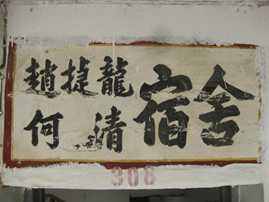 趙捷龍
何清
宿舍